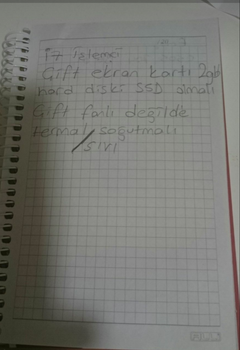 i7 işlemci
Çift ekran kartı 2gb
hard diski SSD olmalı
Çift fanlı değilde
termal / soğutmalı
sıvı